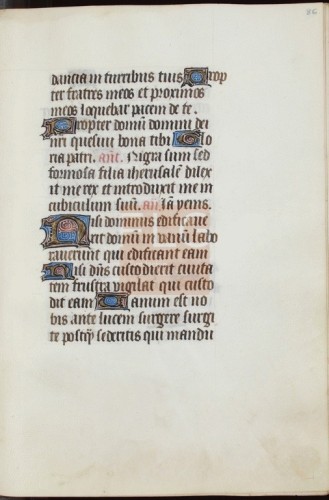 86
dancia in turribus tuis Prop
ter fratres meos et proximos
meos loquebar pacem de te.
Propter domū domini dei
nri quesiui bona tibi Glo
ria patri. añt. Nigra sum sed
formosa filia iherusalē dilex
it me rex et introduxit me in
cubiculum suum. añ. Iā yems.
Nisi dominus edificaue
rit domū in vanū labo
rauerunt qui edificant eam
Nisi dñs custodierit ciuita
tem frustra vigilat qui custo
dit eam Vanum est uo
bis ante lucem surgere surgi
te postq̄ sederitis qui mandu